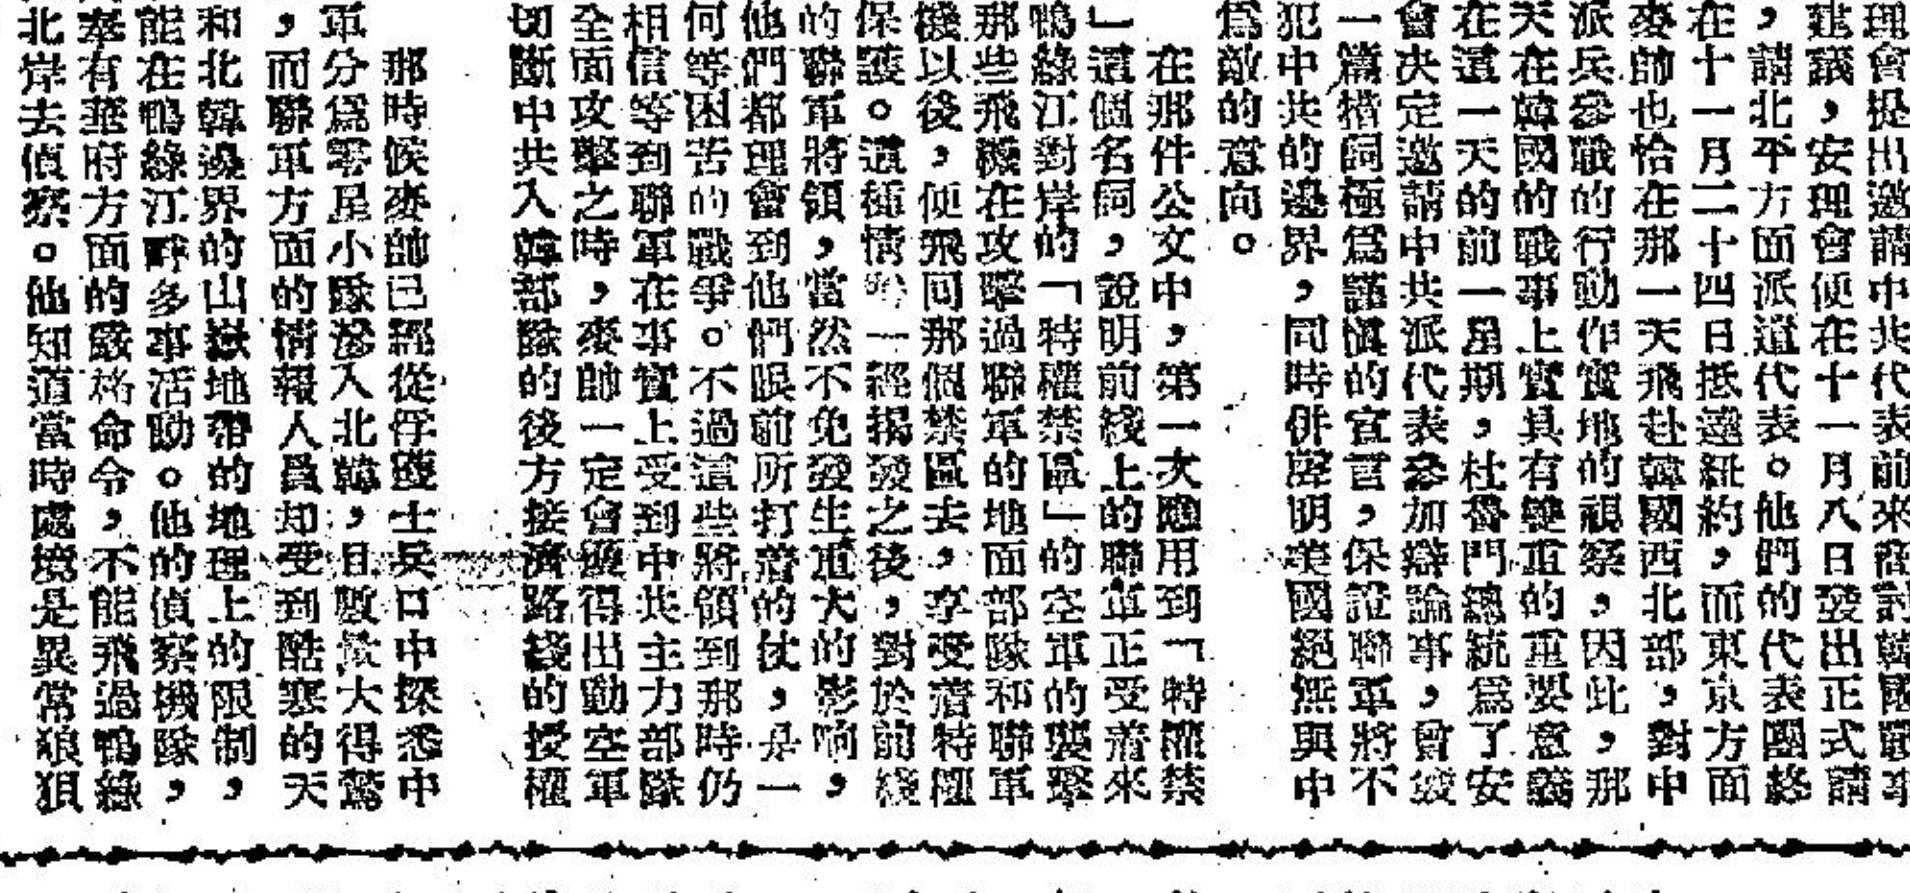 理會提出邀請中共代表前來商討韓國戰事
建議，安理會便在十一月八日發出正式請
，請北平方面派遣代表。他們的代表團終
在十一月二十四日抵達紐約，而東京方面
麥帥也恰在那一天飛赴韓國西北部，對中
派兵參戰的行動作實地的視察，因此，那
天在韓國的戰事上實具有雙重的重要意義
在這一天的前一星期，杜魯門總統為了安
會決定邀請中共派代表參加辯論事，曾發
一篇措詞極為謹慎的宣言，保證聯軍將不
犯中共的邊界，同時併聲明美國絕無與中
為敵的意向。
在那件公文中，第一次應用到「特權禁
」這個名詞，說明前綫上的聯軍正受着來
鴨綠江對岸的「特權禁區」的空軍的襲擊
那些飛機在攻擊過聯軍的地面部隊和聯軍
機以後，便飛回那個禁區去，享受着特權
保護。這種情一經揭發之後，對於前綫
的聯軍將領，當然不免發生重大的影响，
他們都理會到他們眼前所打着的仗，是一
何等困苦的戰爭。不過這些將領到那時仍
相信等到聯軍在事實上受到中共主力部隊
全面攻擊之時，麥帥一定會獲得出動空軍
切斷中共入韓部隊的後方接濟路綫的授權
那時候麥帥已經從俘獲士兵口中探悉中
軍分為零星小隊滲入北韓，日數大得驚
，而聯軍方面的情報人員却受到酷寒的天
和北韓邊界的山嶽地帶的地理上的限制，
能在鴨綠江畔多事活動。他的偵察機隊，
奉有華府方面的嚴格命令，不能飛過鴨綠
北岸去偵察。他知道當時處境是異常狼狽